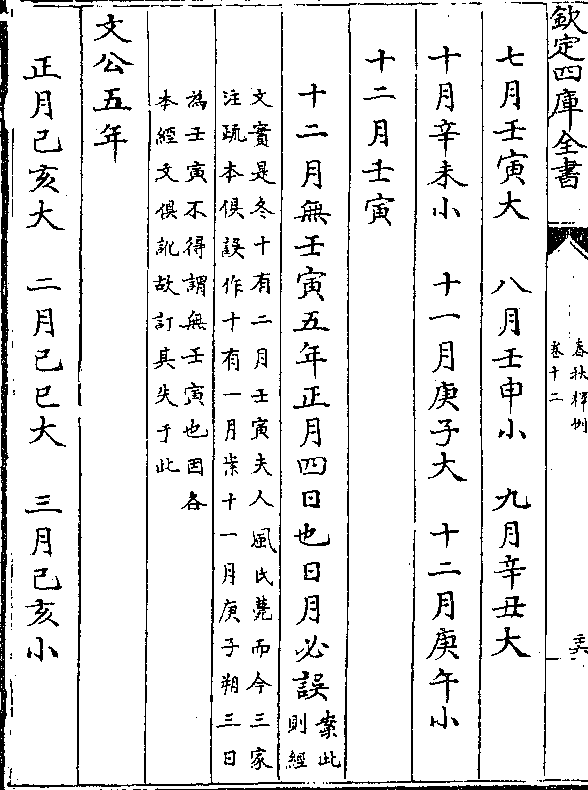 欽定四庫全書
春秋釋例
卷十二
七月壬寅大 八月壬申小 九月辛丑大
十月辛未小 十一月庚子大 十二月庚午小
十二月壬寅
十二月無壬寅五年正月四日也日月必誤案此
則經
文實是冬十有二月壬寅夫人風氏薨而今三家
注疏本俱誤作十有一月案十一月庚子朔三日
為壬寅不得謂無壬寅也因各
本經文俱訛故訂其失于此
文公五年
正月己亥大 二月己巳大 三月己亥小